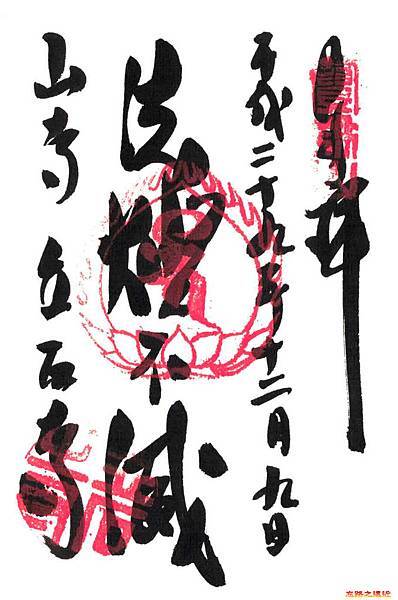 奉拝
平成二十九年十二月九日
法燈不滅
山寺 立石寺